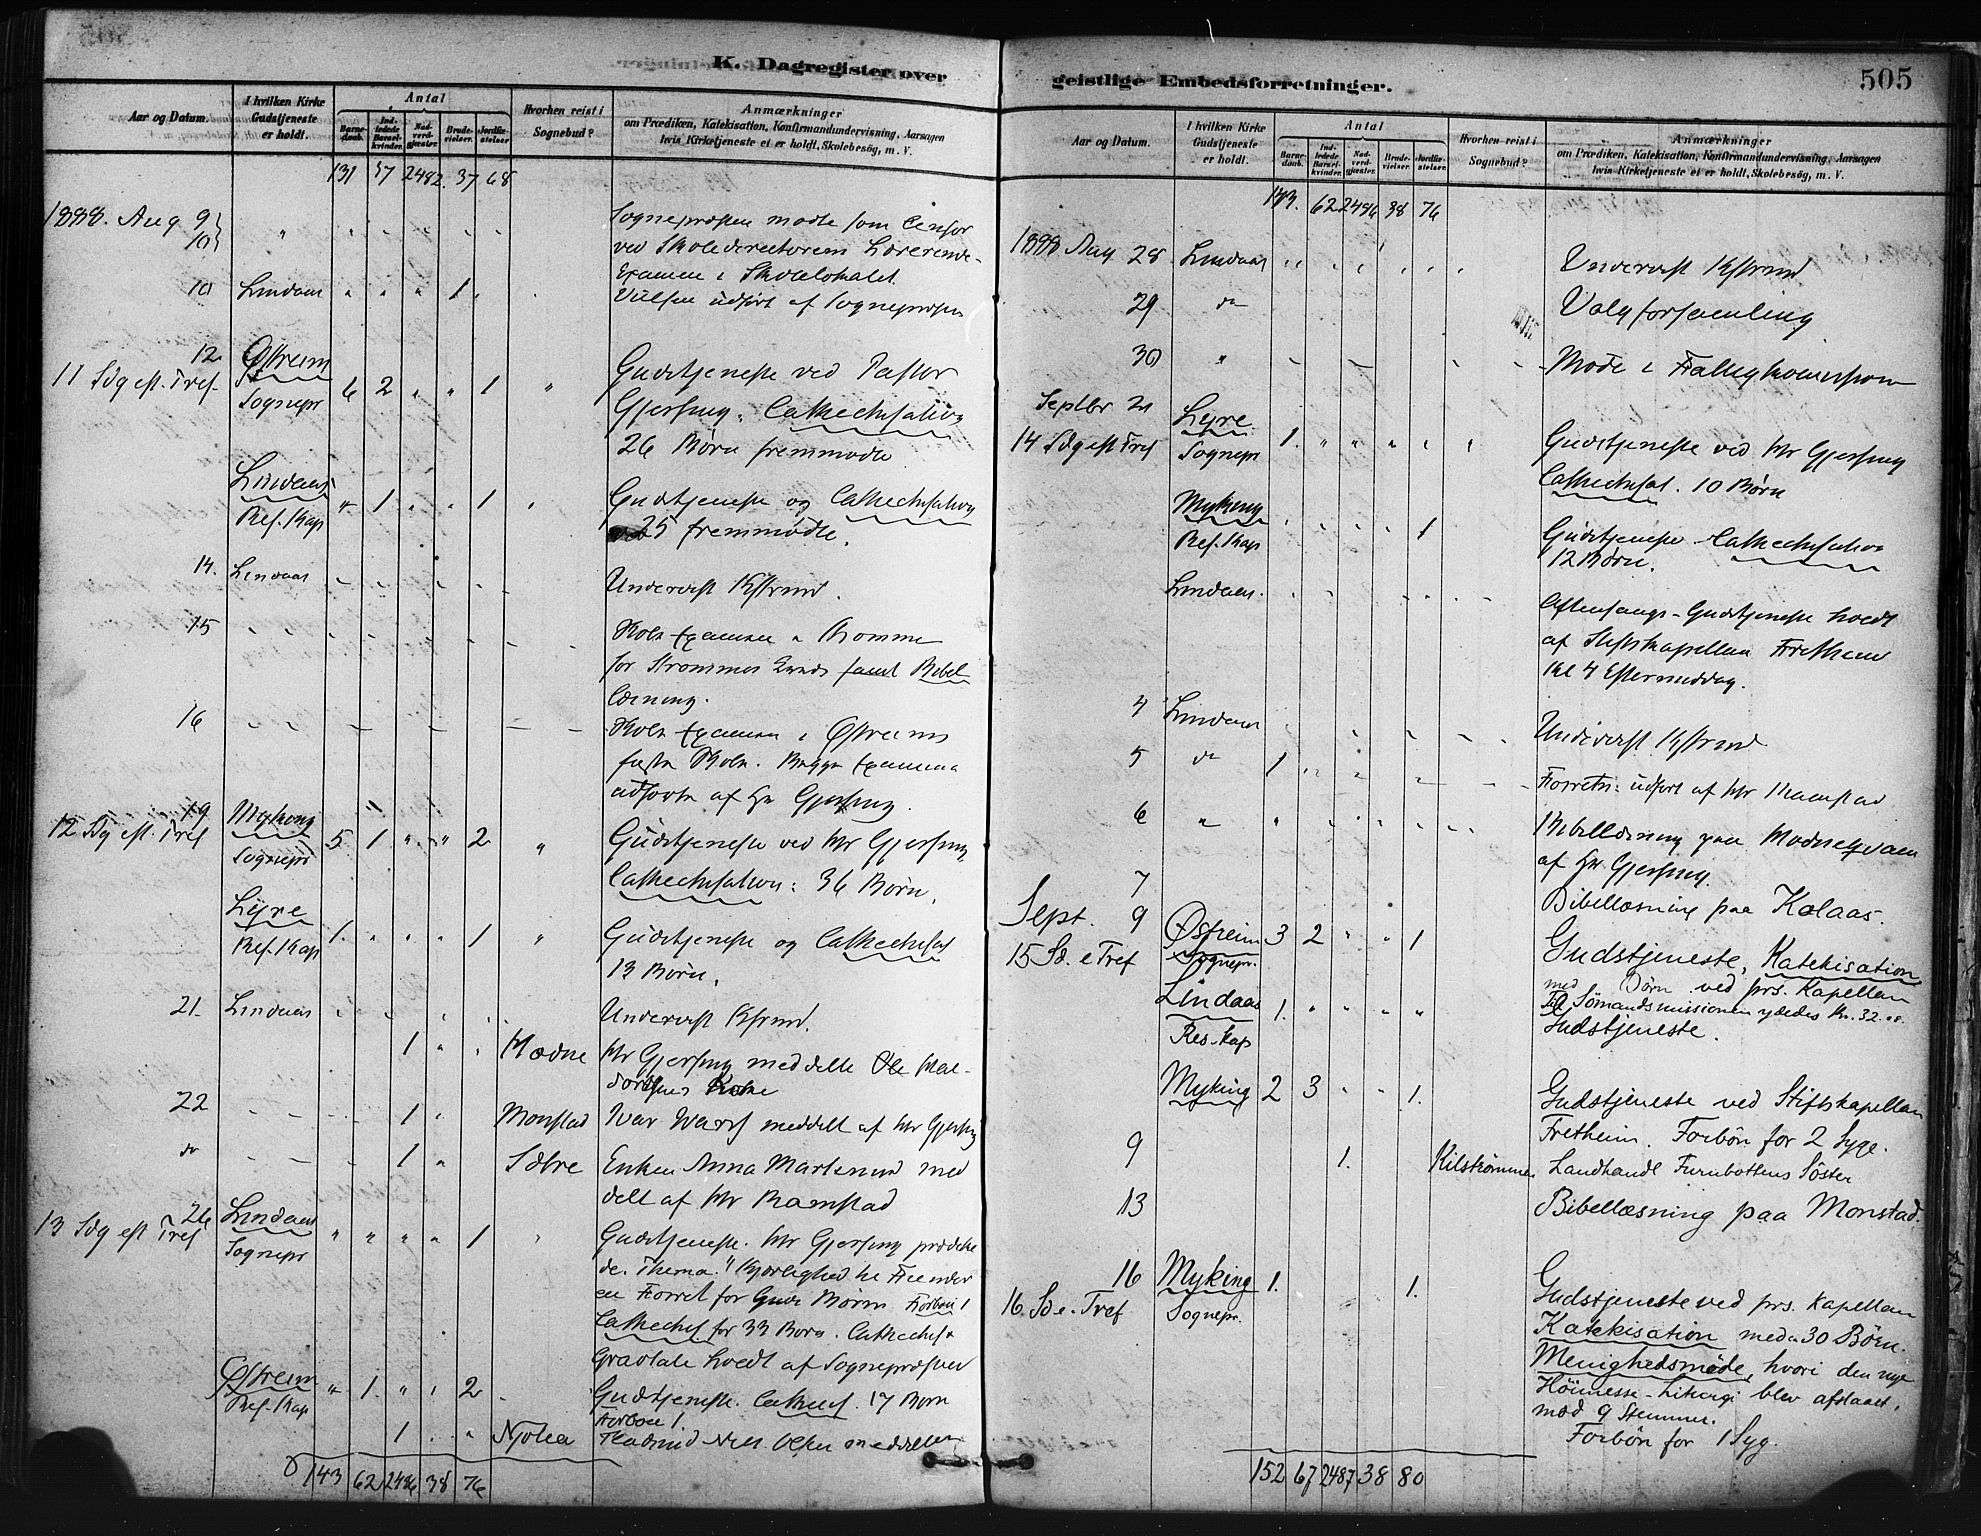 K. Dagregister over
Aar og Datum.
I hvilken Kirke Gudstjeneste er holdt.
Antal
Barne-daab.
Ind-ledede Barsel-kvinder.
Nad-verd-gjæster.
Brude-vielser.
Jordfæ-stelser
Hvorhen reist i Sognebud?
Anmærkninger
om Prædiken, Katekisation, Konfirmandundervisning, Aarsagen
hvis Kirketjeneste ei er holdt, Skolebesøg, m. V.
131 57 2482. 37 68
1888. Aug 9 Sognepræsten mødte som Censor
10 ved Skoledirecteurens Lærerinde-
Examen i Skolelokalet.
10 Lindaas 1 udført af Sognepræsten
12 Østreim Gudstjeneste ved Pastor
11 Sdg eft. Tref. Sognepr 6 2 " " 1 " Gjersing. Cathechisation
26 Børn fremmødte
Lindaas Gudstjeneste og Cathechisation
Res. Kap " 1 " " 1 " 25 fremmødte.
14. Lindaas Undervist Kfirmd.
15 Skole Examen i
for Strømmes Kreds samt Bibel
læsning.
16 Skole Examen i Østreims
faste Skole. Begge Examina
udførte af Hr Gjersing.
19 Myking
12 Sdg eft. Tref Sognepr 5 1 " " 2 " Gudstjeneste ved Hr Gjersing
Cathechisation: 36 Børn.
Lyre
Res. Kap 1. " " " 1 " Gudstjeneste og Cathechisat
13 Børn.
21. Lindaas Undervist Kfirmd.
1 " " Hodne Hr Gjersing meddelte Ole Hal-
Kone
22 1 " Monstad Ivar meddelt af Hr Gjersing
do 1 " Sæbre Enken Anna med
delt af Hr Ramstad
26 Lindaas
13 Sdg eft Tref Sognepr " " " " 1 " Gudstjeneste. Hr Gjersing prædike
de. Thema: "Kjærlighed til Fiender
en Forret for Guds Børn. Forbøn 1
Cathechis for 33 Børn.
Gravtale holdt af Sognepræsten
Østreim
Res. Kap " 1. " " 2 Gudstjeneste. Cathechis. 17 Børn
Forbøn 1.
1 " Njotea Niels Olsen meddeltes
143 62 2486 38 76
geistlige Embedsforretninger.
505
Aar og Datum.
I hvilken Kirke Gudstjeneste er holdt.
Antal
Barne-daab.
Ind-ledede Barsel-kvinder.
Nad-verd-gjæster.
Brude-vielser.
Jordfæ-stelser.
Hvorhen reist i Sognebud?
Anmærkninger
om Prædiken, Katekisation, Konfirmandundervisning, Aarsagen
hvis Kirketjeneste ei er holdt, Skolebesøg, m. V.
143. 62 2486 38 76
1888 Aug 28 Lindaas Undervist Kfirmd
29 do Valgforsamling
30 " Møde i Fattigkommission
Septbr 2 Lyre
14 Sdg eft Tref Sognepr 1. " " " " " Gudstjeneste ved Hr Gjersing
Cathechisat. 10 Børn
Myking
Res. Kap 1 Gudstjeneste. Cathechisation
12 Børn.
Lindaas. Aftensangs-Gudstjeneste holdt
af Stiftskapellan Fretheim
Kl 4 Eftermiddag.
4 Lindaas Undervist Kfirmd
5 do 1 Forretn: udført af Hr Ramstad
6 " Bibellæsning paa
af Hr Gjersing.
7 Bibellæsning paa Kolaas.
Sept. 9 Østreim 3 2 " " 1
15 Sd. e Tref Sognepr. Gudstjeneste, Katekisation
med Børn ved prs. Kapellan
Lindaas 1. " " " " Til Sømandsmissionen ydedes Kr. 32.08.
Res. Kap Gudstjeneste.
Myking 2 3 " " 1. Gudstjeneste ved Stiftskapellan
Fretheim. Forbøn for 2 Syge.
9 1. Kilstrømmen Landhandl Furubottens Søster
13 Bibellæsning paa Monstad.
16 Myking 1. 1. Gudstjeneste ved prs. Kapellan
16. Sd e. Tref Sognepr. Katekisation med 30 Børn.
Menighedsmøde, hvori den nye
Høimesse-Liturgi blev afslaaet,
mod 9 Stemmer.
Forbøn for 1 Syg.
152 67 2487 38 80